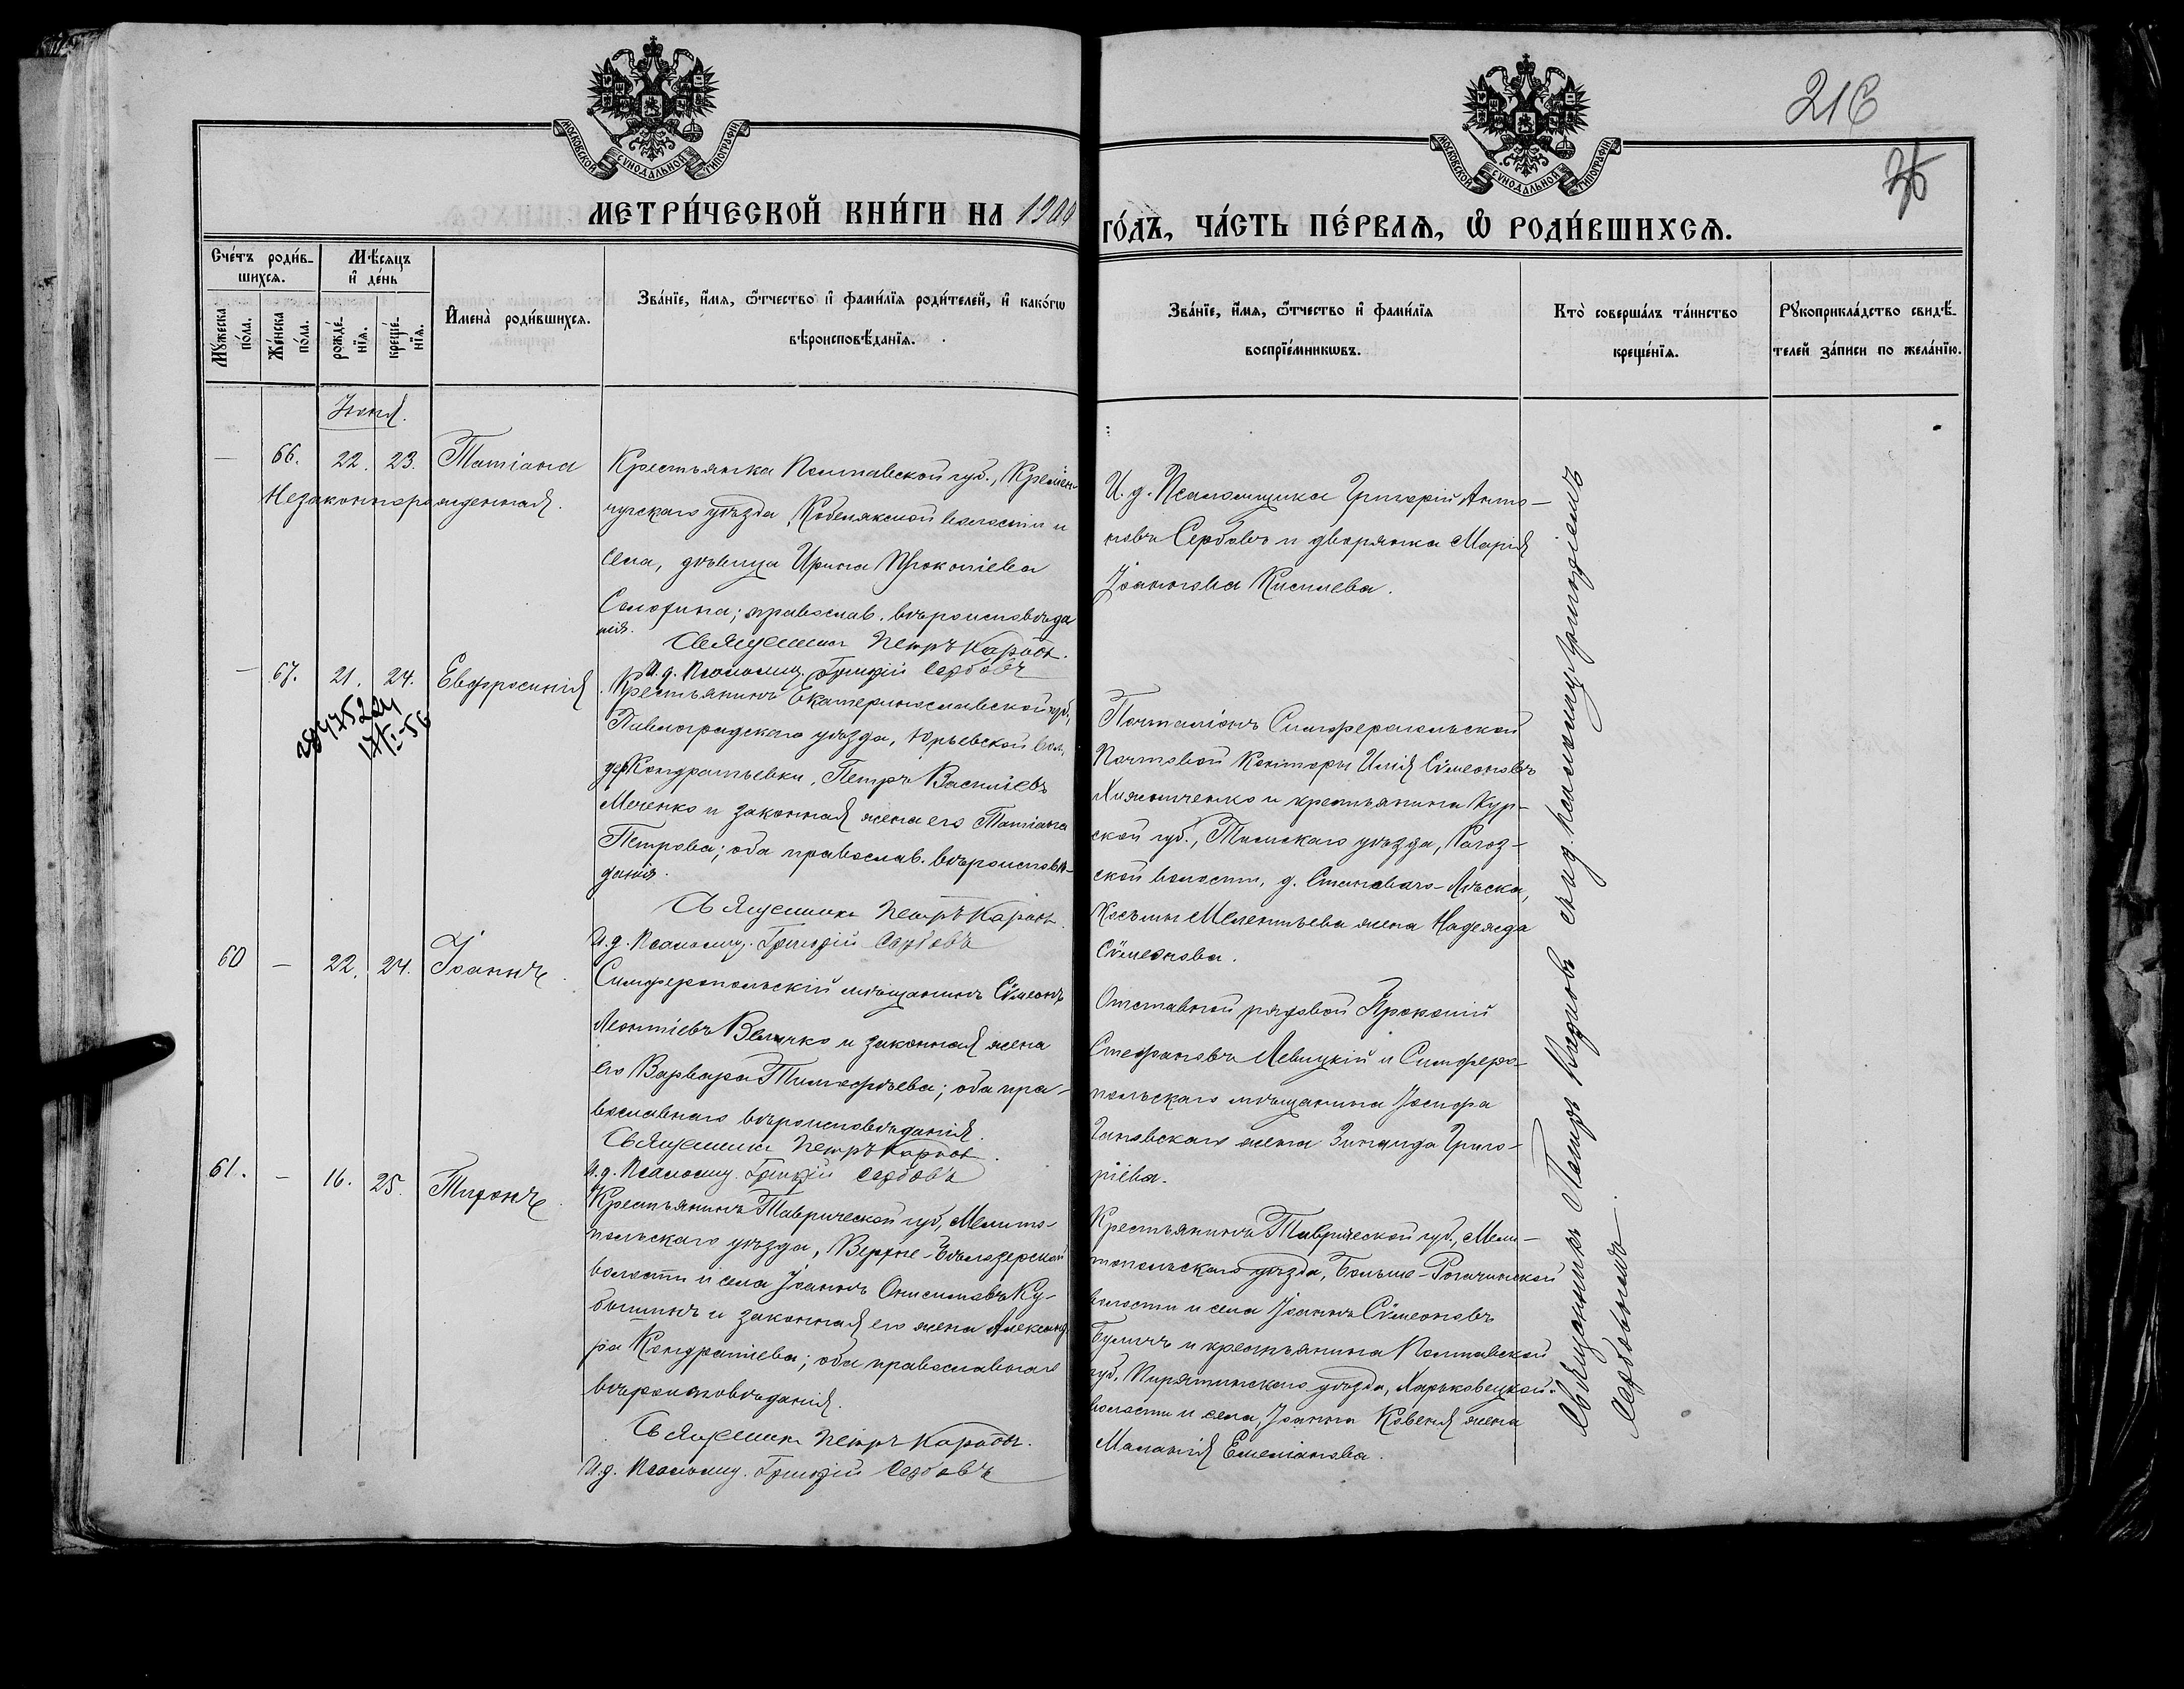 216
36
МОСКОВСКОЙ СѴНОДАЛЬНОЙ ТИПОГРАФІИ
МОСКОВСКОЙ СѴНОДАЛЬНОЙ ТИПОГРАФІИ
МЕТРИ́ЧЕСКОЙ КНИ́ГИ НА 1900
ГО́ДЪ, ЧА́СТЬ ПЕ́РВАЯ, Ѿ РОДИ́ВШИХСЯ.
Сче́тъ роди́в-
шихся.
Мѣ́сяцъ
и де́нь
Мꙋ́жеска
по́ла.
Же́нска
по́ла.
рожде́-
нїя.
креще́-
нїя.
Имена̀ роди́вшихся.
Зва́нїе, и́мя, ѻ́тчество и фами́лїя роди́телей, и како́гѡ
вѣроисповѣ́данїя.
Зва́нїе, и́мя, ѻ́тчество и фами́лїя
воспрїе́мникѡвъ.
Кто̀ соверша́лъ та́инство
креще́нїя.
Рꙋкоприкла́дство свидѣ́-
телей за́писи по жела́нїю.
Іюня.
— 66. 22. 23. Татіана
Незаконнорожденная.
Крестьянка Полтавской губ., Кремен-
чугскаго уѣзда, Кобелякской волости и
села, дѣвица Ирина Прокопіева
Солохина; православ. вѣроисповѣда
нія.
Священникъ Петръ Карповъ.
И.д. Псаломщ. Григорій Сербовъ
И. д. Псаломщика Григорій Анто-
новъ Сербовъ и дворянка Марія
Іоаннова Киселева.
— 67. 21. 24. Евфросинія
2847524
17/I-56
Крестьянинъ Екатеринославской губ.,
Павлоградскаго уѣзда, Юрьевской вол.
дер. Кондратьевки, Петръ Василіевъ
Меченко и законная жена его Татіана
Петрова; оба православ. вѣроисповѣ-
данія.
Священникъ Петръ Карповъ
И.д. Псаломщ. Григорій Сербовъ
Почталіонъ Симферопольской
Почтовой Конторы Илія Сѵмеоновъ
и крестьянина Кур-
ской губ., Тимскаго уѣзда,
ской волости, д. Становаго-Лѣска,
Косьмы Мелентьева жена Надежда
Сѵмеонова.
60 — 22. 24. Іоаннъ.
Симферопольскій мѣщанинъ Сѵмеонъ
Леонтіевъ Величко и законная жена
его Варвара Тимофѣева; оба пра-
вославнаго вѣроисповѣданія.
Священникъ Петръ Карповъ.
И.д. Псаломщ. Григорій Сербовъ
Отставной рядовой Прокопій
Стефановъ Левицкій и Симферо-
польскаго мѣщанина Іосифа
жена Зинаида Григо-
ріева.
61. — 16. 25. Тихонъ.
Крестьянинъ Таврической губ., Мелито-
польскаго уѣзда, Верхне-Бѣлозерской
волости и села Іоаннъ Онисимовъ Ку-
и законная его жена Александ-
ра Кондратіева; оба православнаго
вѣроисповѣданія.
Священникъ Петръ Карповъ.
И.д. Псаломщ. Григорій Сербовъ
Крестьянинъ Таврической губ., Мели-
топольскаго уѣзда, Больше-Рогачинской
волости и села Іоаннъ Сѵмеоновъ
и крестьянина Полтавской
губ. Пирятинскаго уѣзда, Харьковецкой
волости и села, Іоанна Ковеня жена
Маланія Емеліанова.
Священникъ Петръ Карповъ съ и.д. псаломщ. Григоріемъ
Сербовымъ.